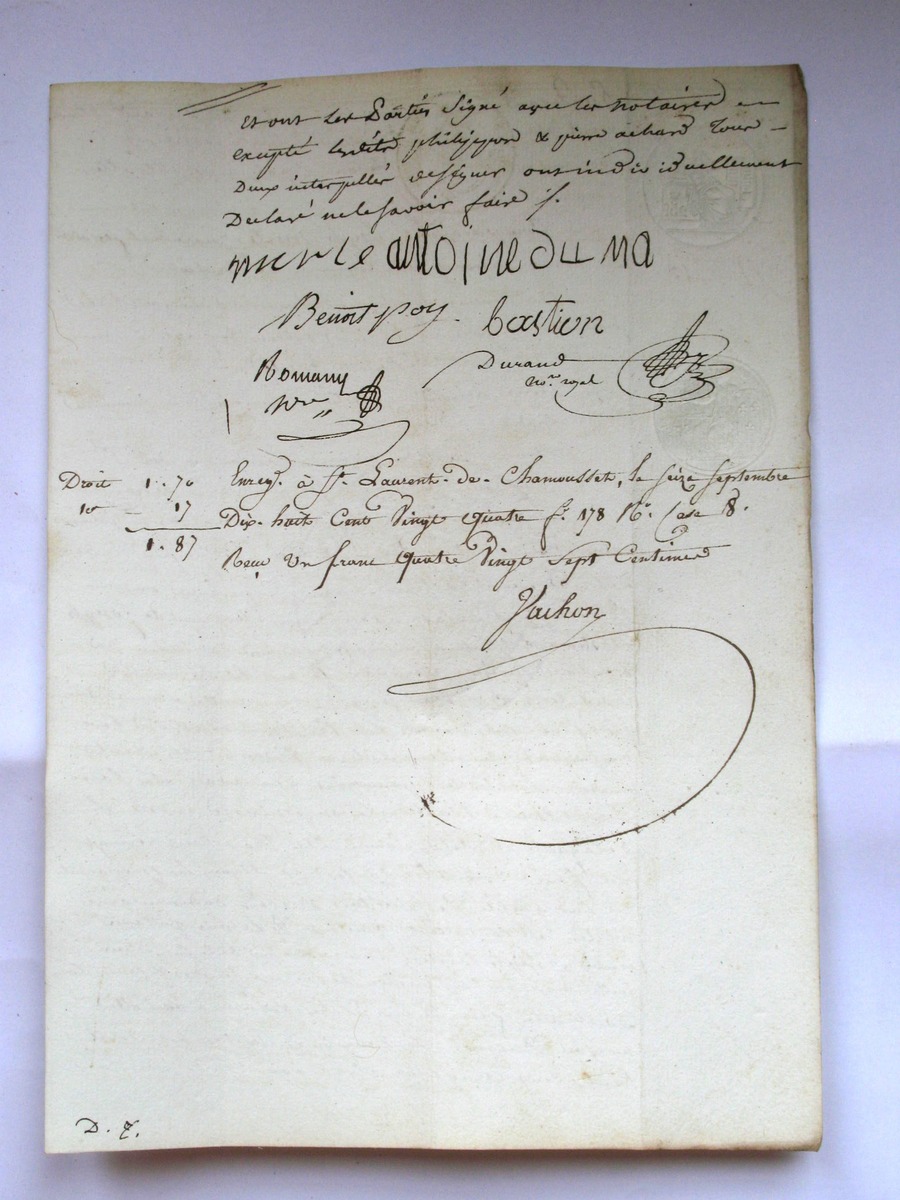 Et ont les Parties Signé avec les notaires
excepté lesdits philippon & pierre achard tous
Deux interpellés designer ont individuellement
Declaré ne le savoir faire /.
merle antoine duma
Benoit poy. bastion
Romany Durand
Nre no.re royal
Droit 1. 70 Enreg.t à St. Laurent-de-Chamousset, le seize septembre
10e 17 Dix-huit Cent Vingt quatre f.o 178 R.o Case 8.
1. 87 Recu Un franc quatre Vingt Sept Centimes
Vachon
D. 7.